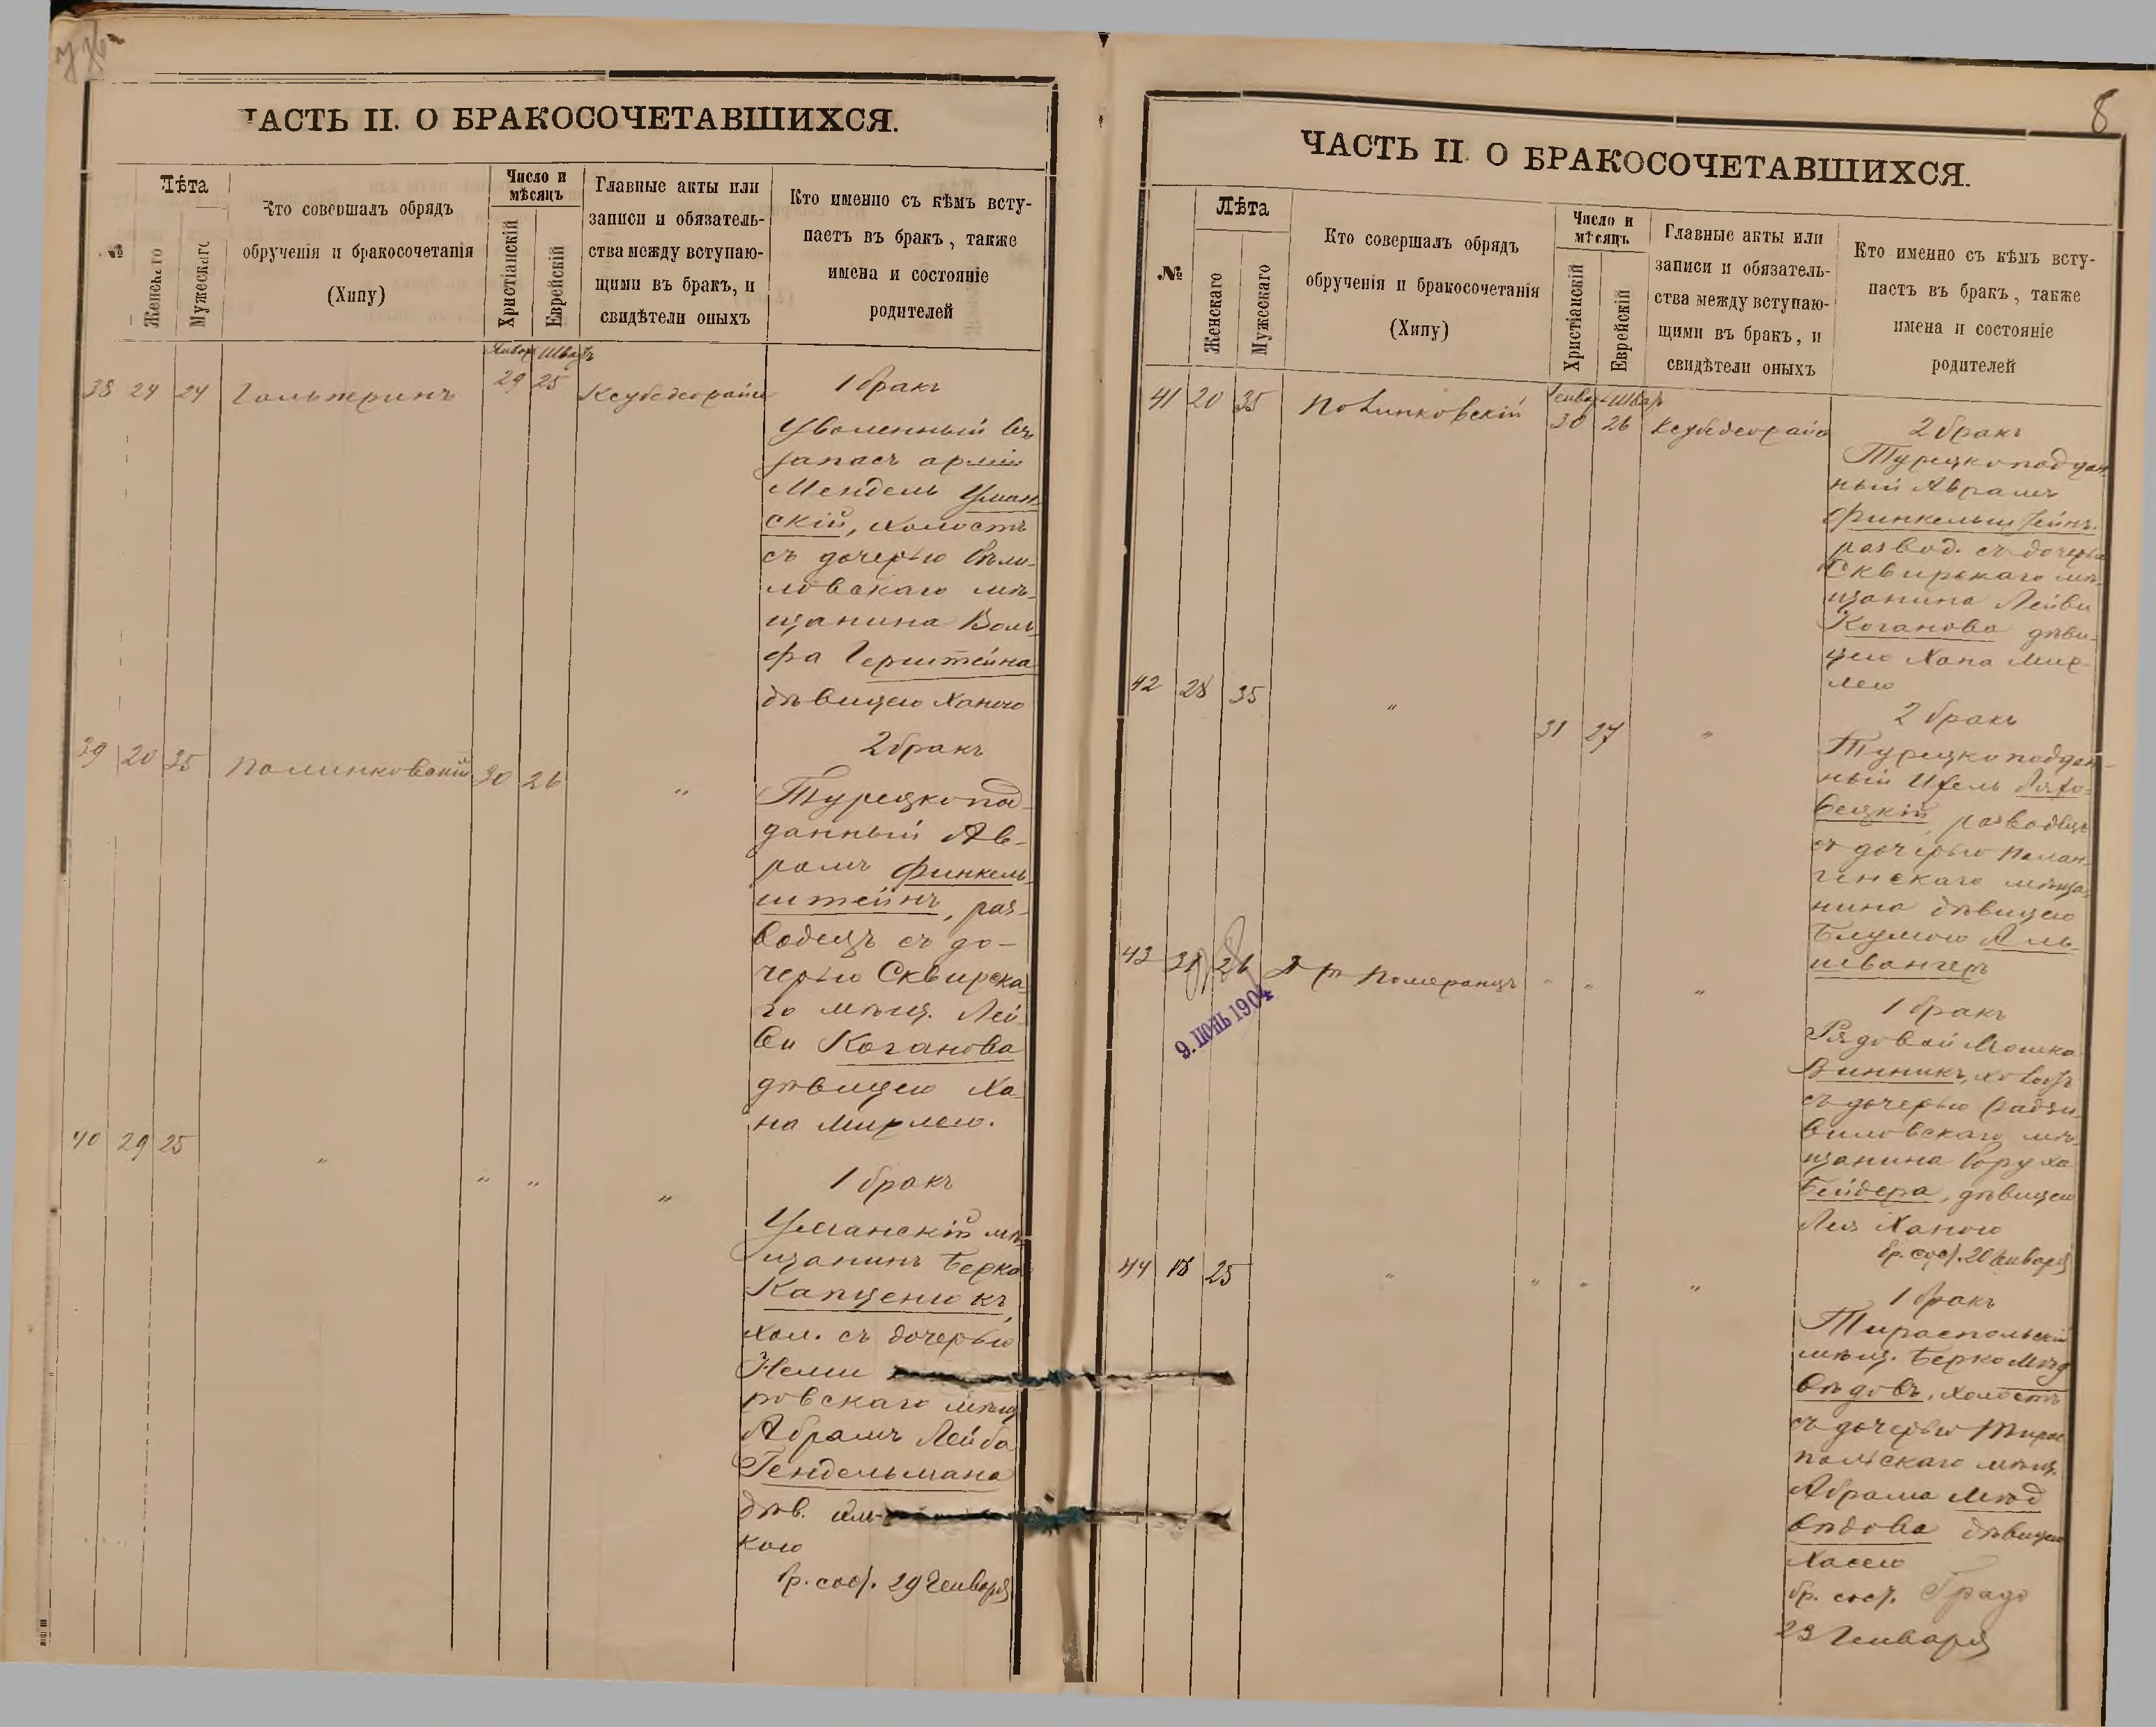 ЧАСТЬ II. О БРАКОСОЧЕТАВШИХСЯ.
№
Лѣта
Женскаго
Мужескаго
Кто совершалъ обрядъ
обрученія и бракосочетанія
(Хипу)
Число и
мѣсяцъ
Христіанскій
Еврейскій
Главные акты или
записи и обязатель-
ства между вступаю-
щими въ бракъ, и
свидѣтели оныхъ
Кто именно съ кѣмъ всту-
паетъ въ бракъ, также
имена и состояніе
родителей
Январ Шватъ
38 24 24 Гальперинъ 29 25
1 бракъ
Уволенный въ
запасъ арміи
Мендель Уман
скій, холостъ
съ дочерью
ловскаго мѣ-
щанина Воль
фа Герштейна
дѣвицею Ханою
39 20 35 Полинковскій 30 26 "
2 бракъ
Турецкопод
данный Ав-
рамъ Финкель
штейнъ, раз-
водецъ съ до-
черью Сквирска
го мѣщ. Лей
бы Коганова
дѣвицею Ха
на Мирлею.
40 29 25 " " " "
1 бракъ
Уманскій мѣ
щанинъ Берко
Капценюкъ,
хол. съ дочерью
Неми
ровскаго мѣщ
Абрамъ Лейба
Гендельмана
дѣв.
кою
бр. сос. 29 Генваря
8
ЧАСТЬ II. О БРАКОСОЧЕТАВШИХСЯ.
№
Лѣта
Женскаго
Мужескаго
Кто совершалъ обрядъ
обрученія и бракосочетанія
(Хипу)
Число и
мѣсяцъ
Христіанскій
Еврейскій
Главные акты или
записи и обязатель-
ства между вступаю-
щими въ бракъ, и
свидѣтели оныхъ
Кто именно съ кѣмъ всту-
паетъ въ бракъ, также
имена и состояніе
родителей
Генвар Шват
41 20 35 Полинковскій 30 26
2 бракъ
Турецкоподдан
ный Аврамъ
Финкельштейнъ
развод. съ дочерью
Сквирскаго мѣ-
щанина Лейбы
Коганова дѣви-
цею Хана Мир
лею
42 28 35 " 31 27 "
2 бракъ
Турецкоподдан-
ный
бецкій, разводецъ
съ дочерью Полан
генскаго мѣща
нина дѣвицею
Блумою Аль
швангеръ
43 31 26 Померанцъ " " "
9. ІЮНЬ 1904
1 бракъ
Рядовой Мошко
Винникъ, холостъ
съ дочерью Радзи
виловскаго мѣ-
щанина Боруха
Бейдера, дѣвицею
Лея Ханою
бр. сос. 20 Января
44 18 25 " " " "
1 бракъ
Тираспольскій
мѣщ. Берко Мѣд
вѣдовъ, холостъ
съ дочерью Тирас
польскаго мѣщ.
Абрама Мѣд
вѣдова дѣвицею
Хасею
бр. сос.
23 Генваря